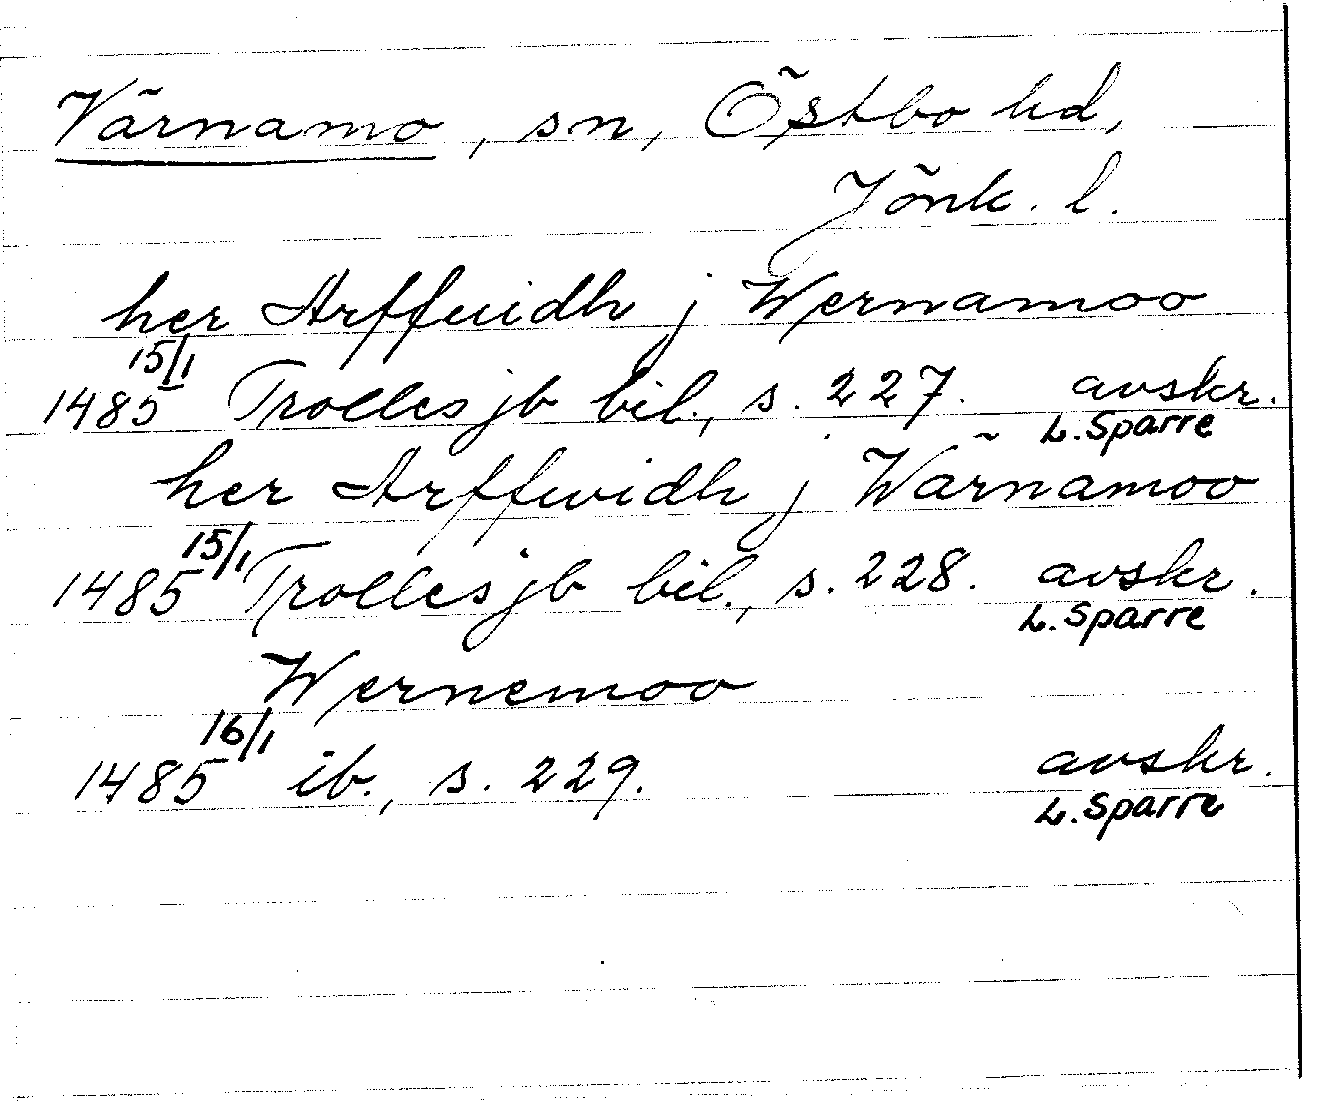 Värnamo, sn, Östbo hd,
Jönk. l.
her Arffuidh j Wernamoo
1485 15/1 Trolles jb bil., s. 227. avskr.
L. Sparre
her Arffwidh j Wärnamoo
1485 15/1 Trolles jb bil., s. 228. avskr.
L. Sparre
Wernemoo
1485 16/1 ib., s. 229. avskr.
L. Sparre